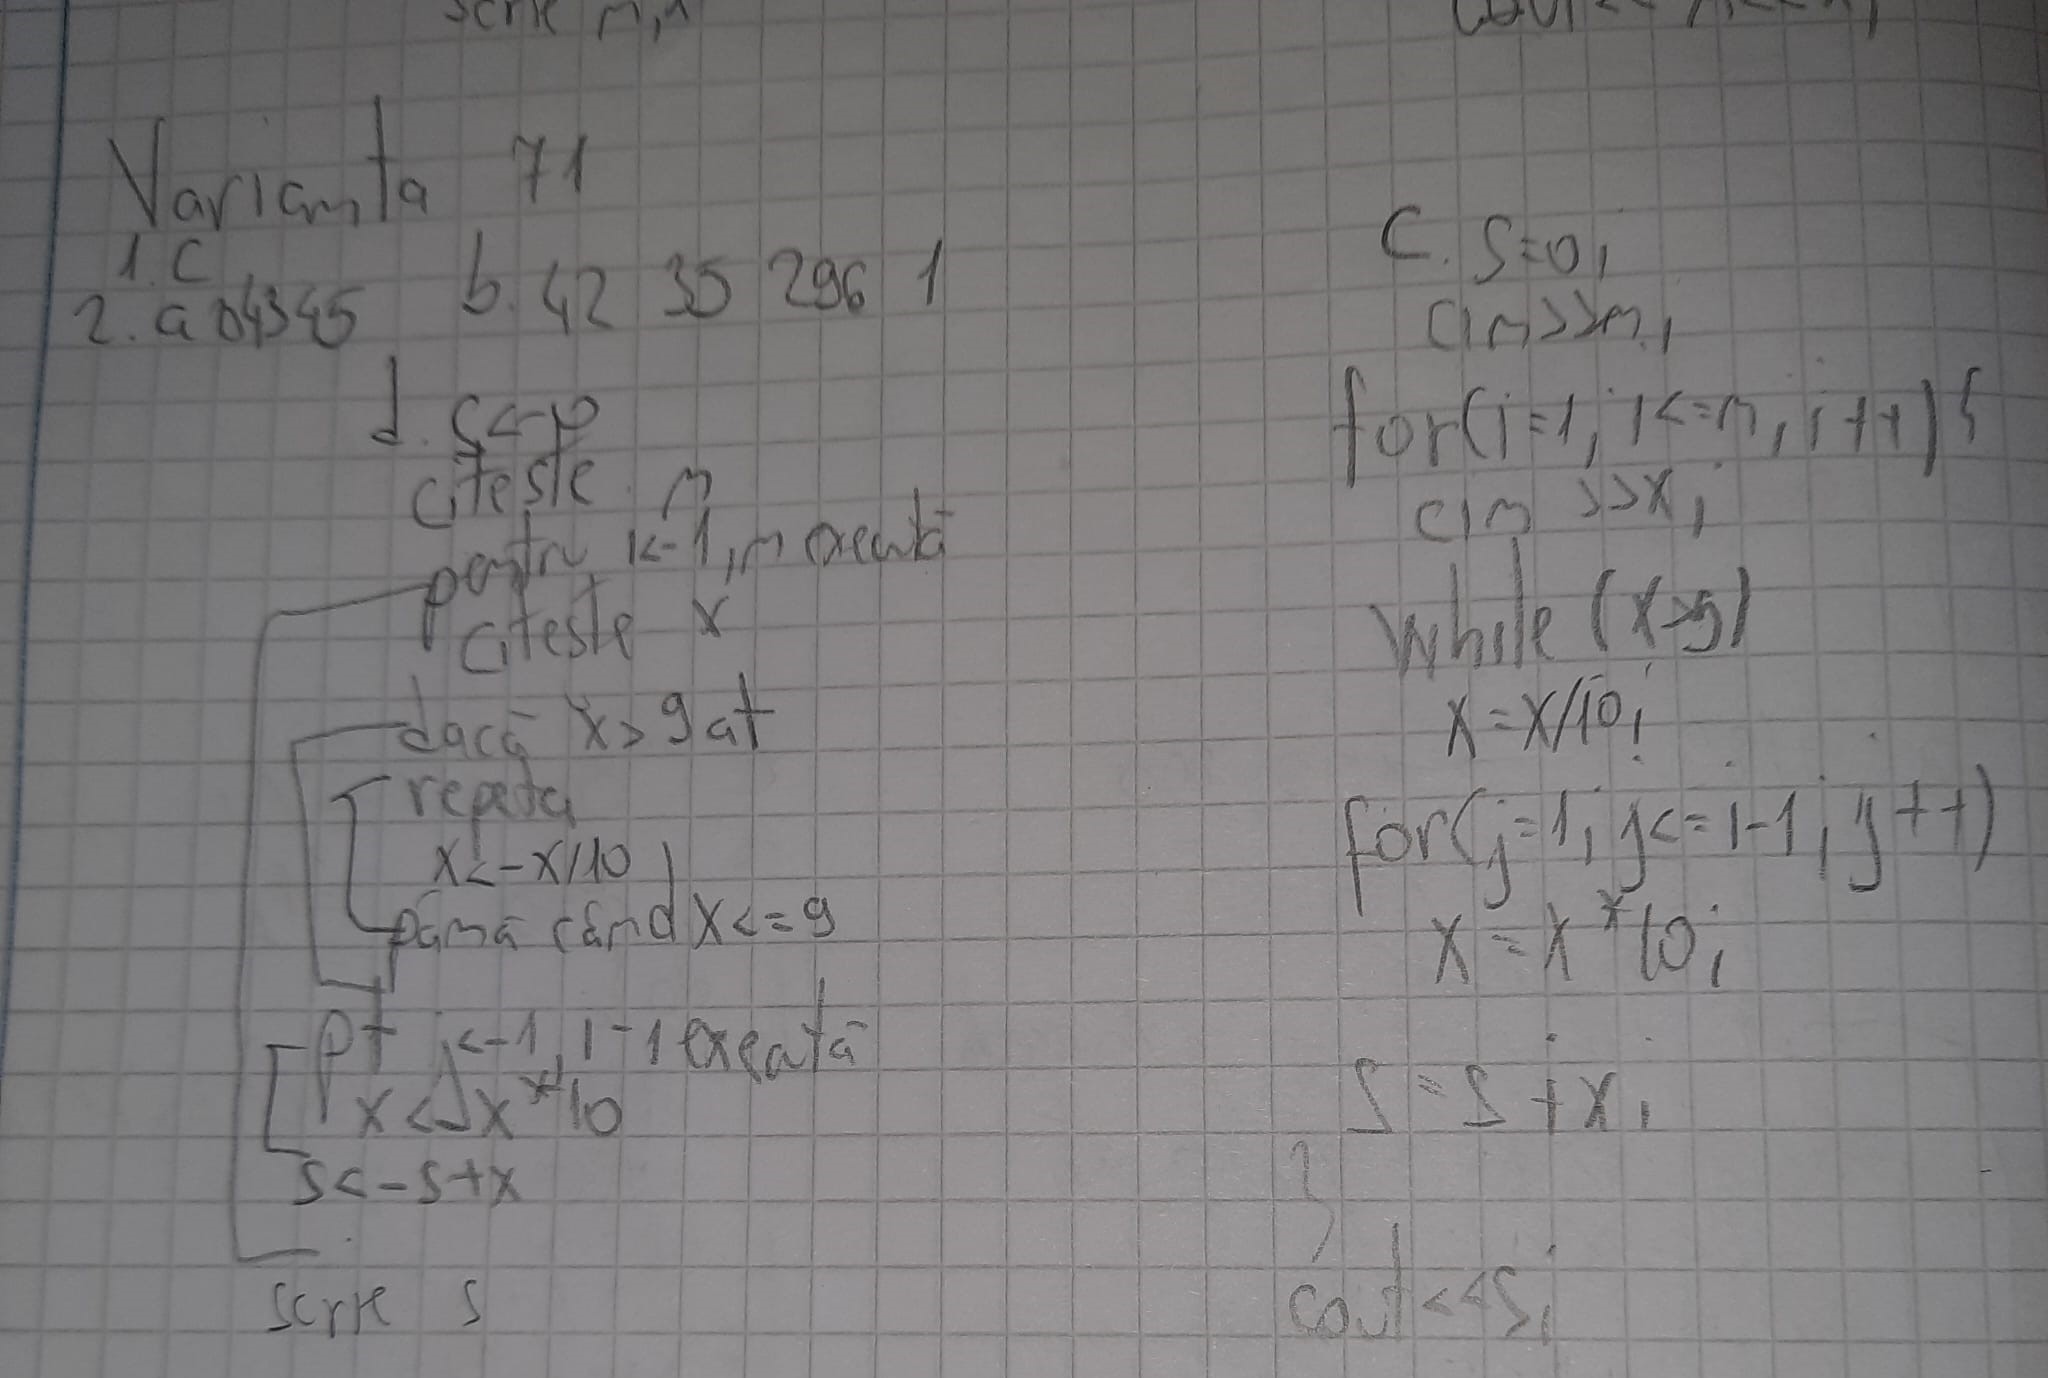 scrie n,
Varianta 71
1. c
2. a 04345 b. 42 35 296 1
d. s<-0
citeste n
pentru i<-1, n executā
citeste x
dacā x>9 at
repeta
x<-x/10
pānā cānd x<=9
pt j<-1, i-1 executā
x<-x*10
s<-s+x
scrie s
c. s=0;
cin>>n;
for(i=1; i<=n; i++){
cin >>x;
while (x>9)
x=x/10;
for(j=1; j<=i-1; j++)
x=x*10;
s=s+x;
}
cout<<s;